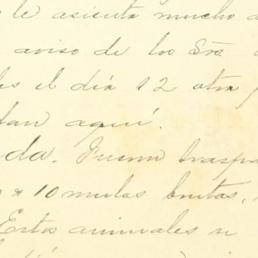 le asienta mucho
aviso de los Sres
el día 12 otra
tan aquí.
da. Fueron traspa
10 mulas brutas,
Estos animales se